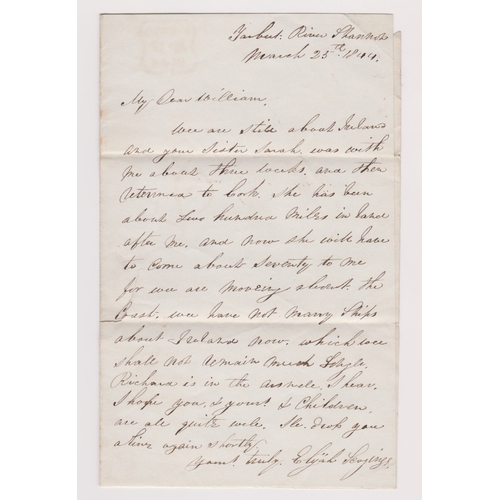 Tarbert. River Shannon
March 25th 1844.
My Dear William.
Wee are still about Ireland
and your Sister Sarah was with
me about three weeks. and then
returned to Cork. She has been
about two hundred miles in land
after me. and now she will have
to come about Seventy to me
for wee are mooving about the
Coast. wee have not many Ships
about Ireland now. which wee
shall not remain much Longle.
Richard is in the I hear.
I hope you, & yours & Children.
are all quite well. Ile. drop you
a line again Shortly
yours. truly. Elijah